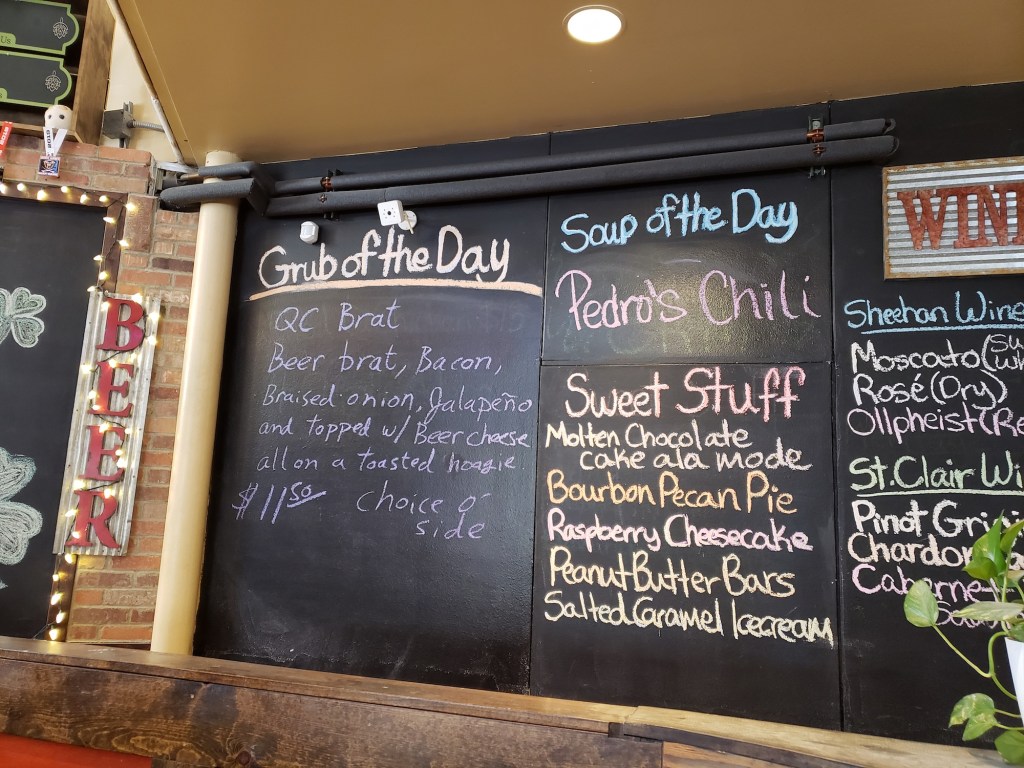 Us
BEER
Grub of the Day
QC Brat
Beer brat, Bacon,
Braised onion, Jalapeño
and topped w/ Beer cheese
all on a toasted hoagie
$11.50 choice o'
side
Soup of the Day
Pedro's Chili
Sweet Stuff
Molten Chocolate
cake ala mode
Bourbon Pecan Pie
Raspberry Cheesecake
Peanut Butter Bars
Salted Caramel Icecream
WIN
Sheehan Wine
Moscato (
Rosé (Dry)
Ollpheist (Re
St. Clair Wi
Pinot Gri
Chardon
Caberne